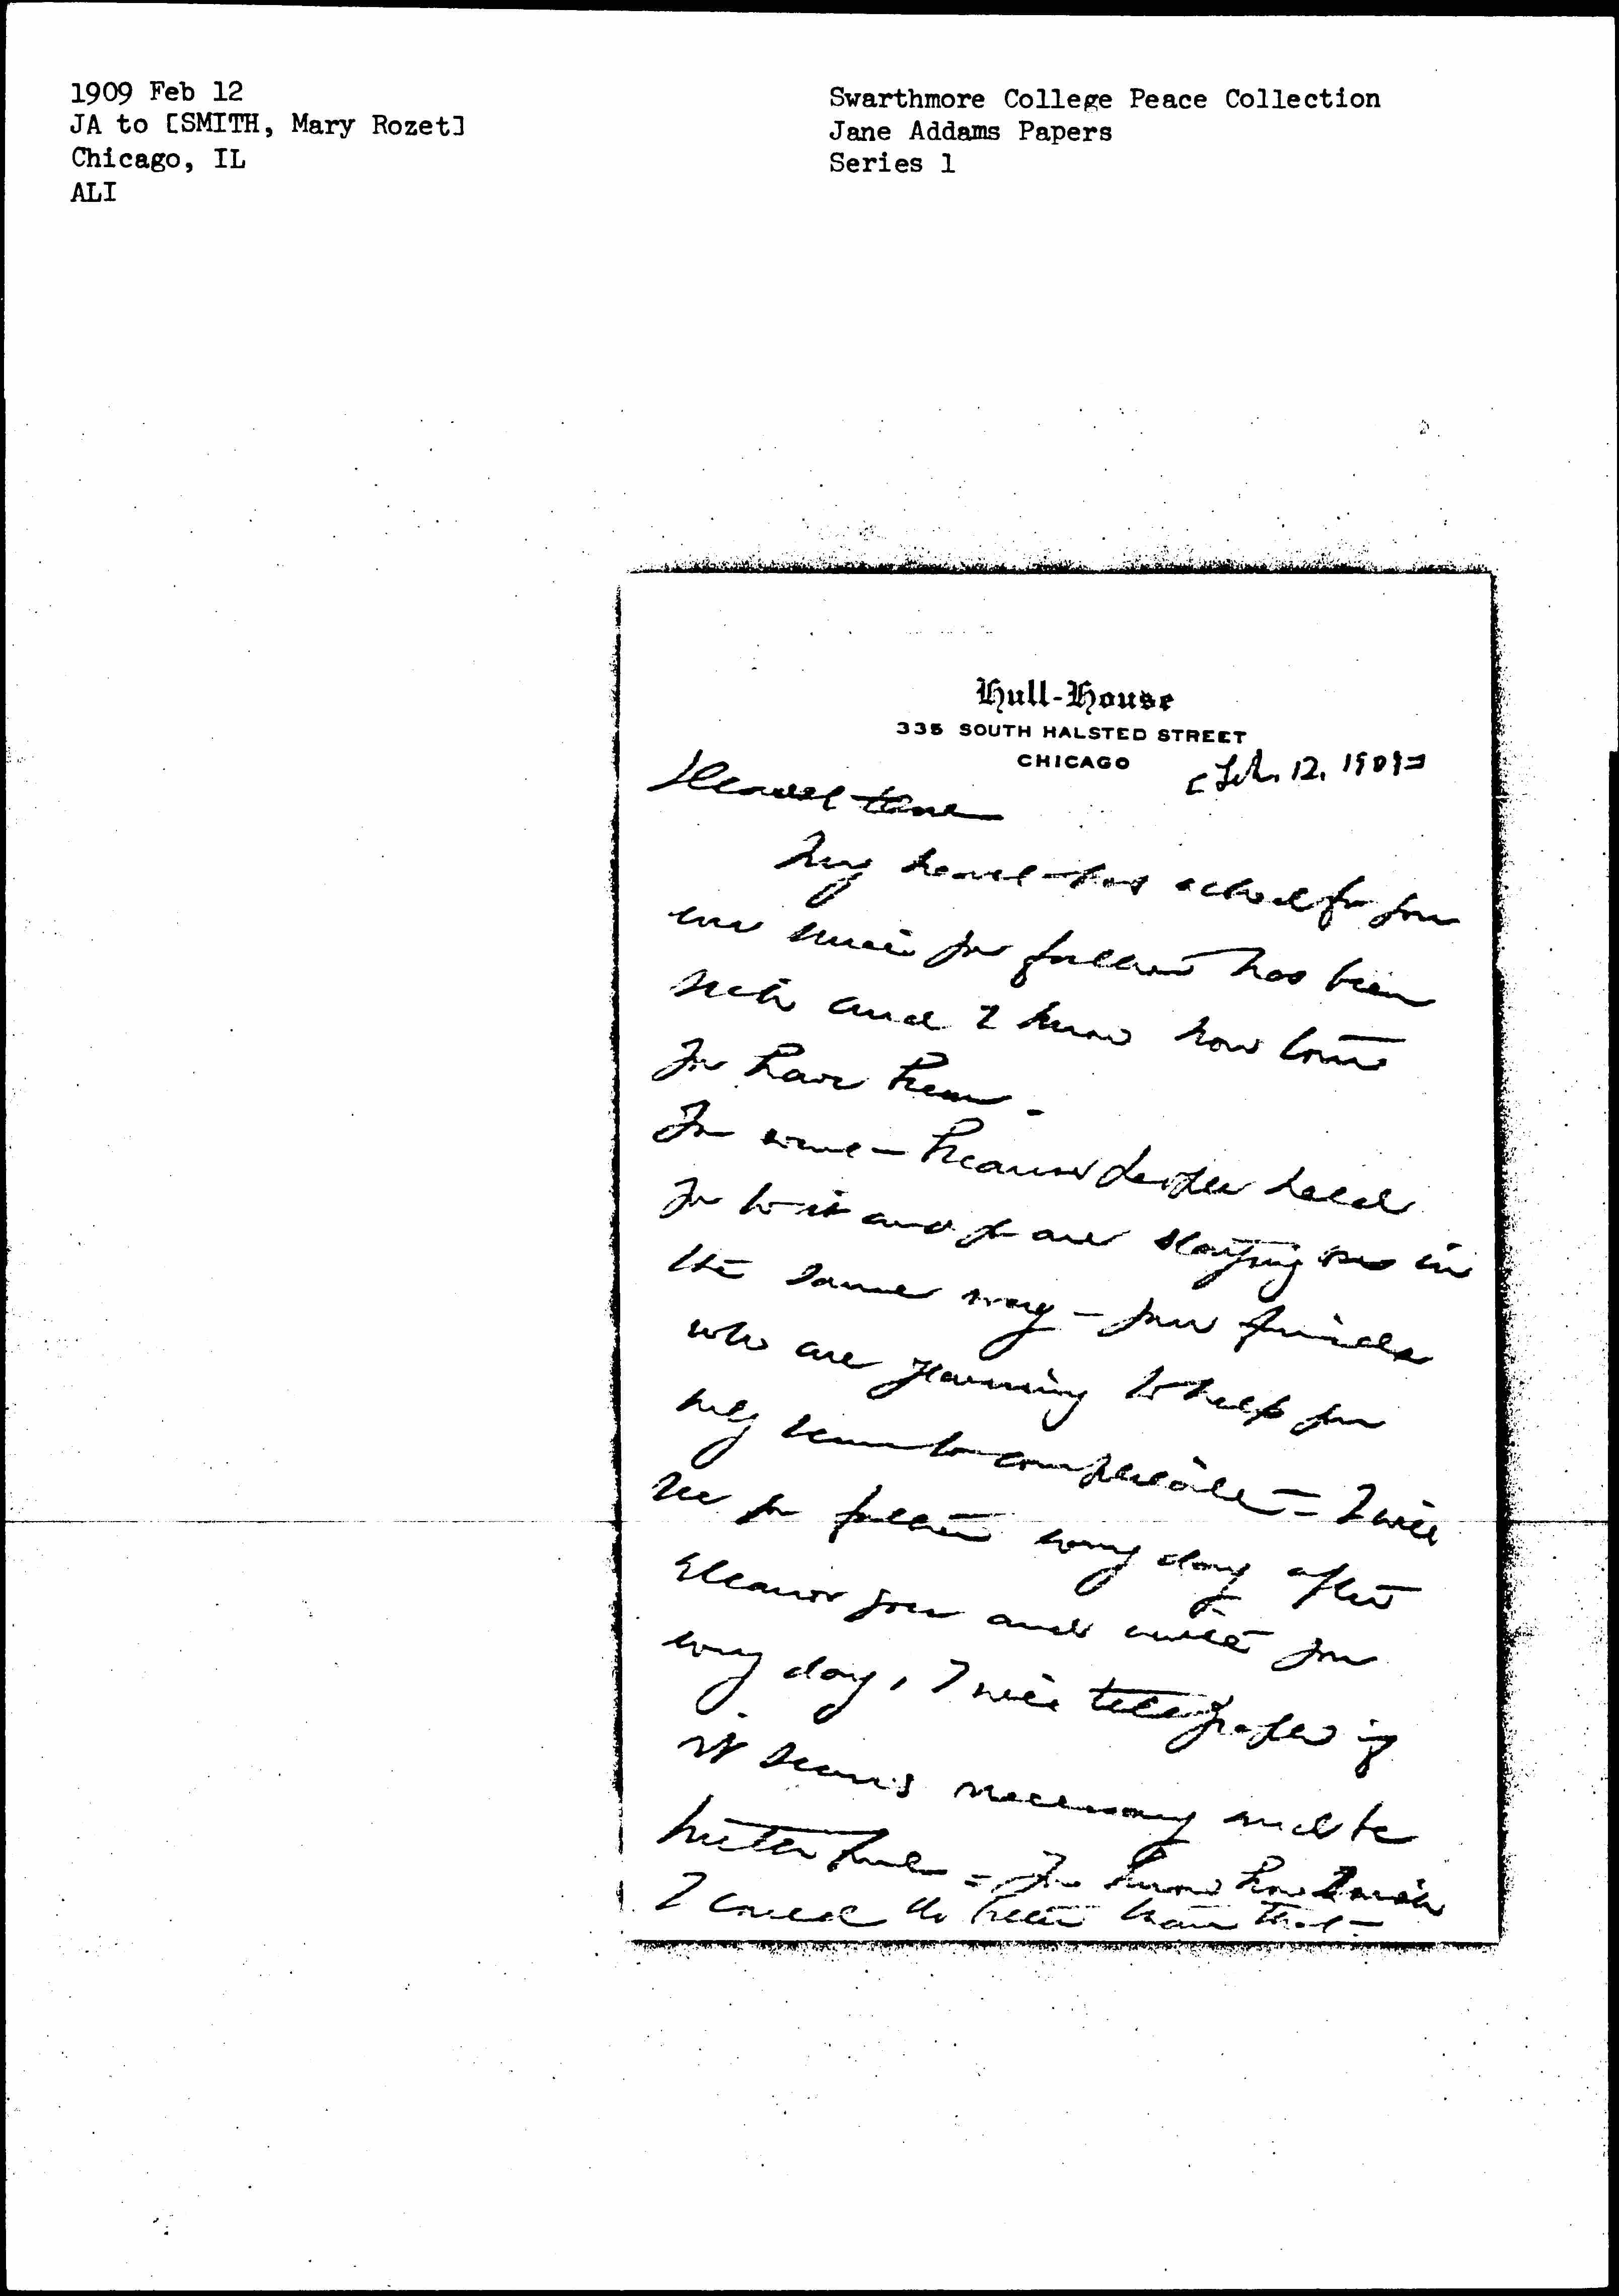 1909 Feb 12
JA to [SMITH, Mary Rozet]
Chicago, IL
ALI
Swarthmore College Peace Collection
Jane Addams Papers
Series 1
Hull-House
335 SOUTH HALSTED STREET
CHICAGO
[Feb. 12, 1909]
Dearest
My heart has ached for you
ever since your father has been
sick and I know how
you have been.
You went because people
you to it and you are staying on in
the same way - your friends
who are yearning to help you
only seem to complicate = I will
see your father every day after
Eleanor goes and write you
every day, I will telegraph if
it seems necessary and be
= You know how I wish
I could do better than that -